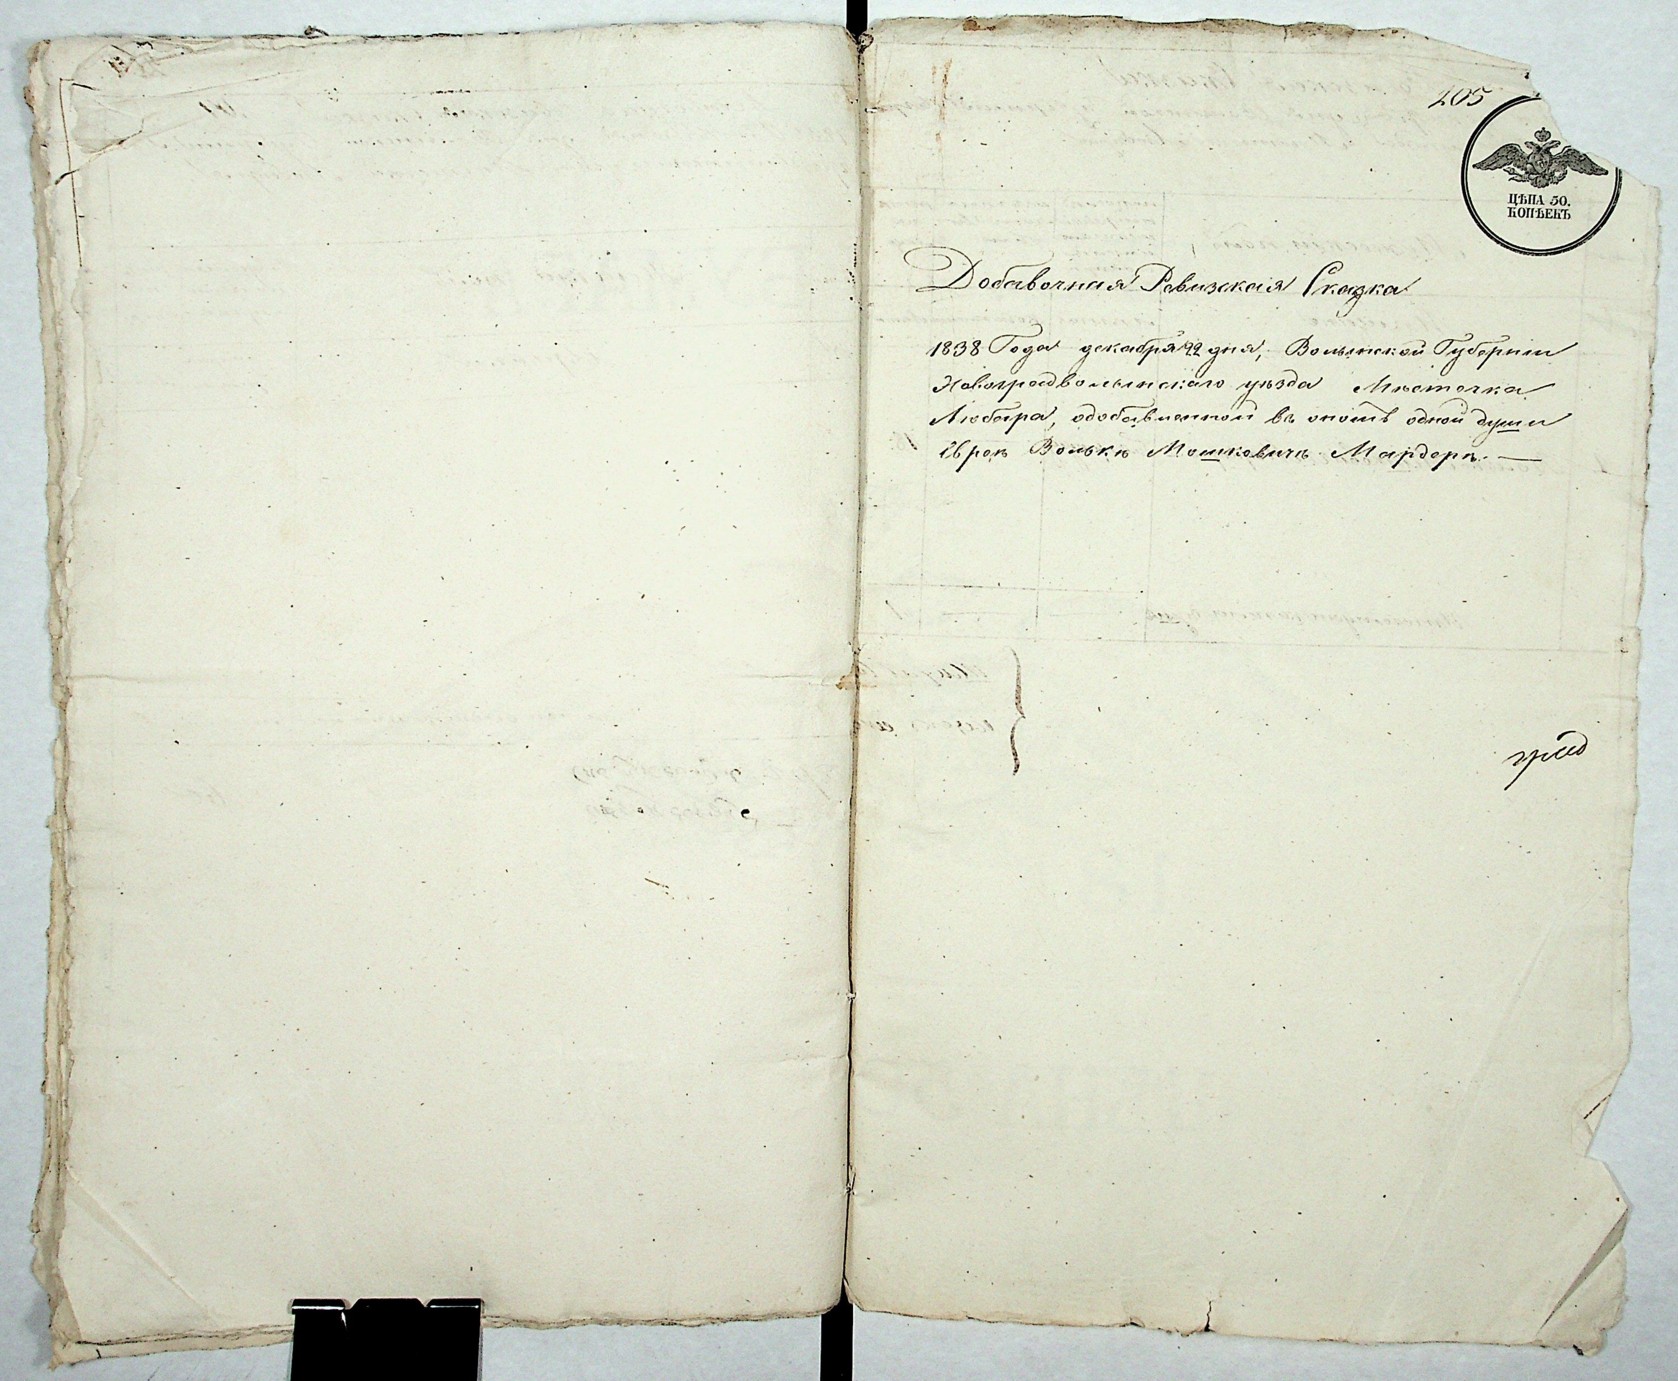 205
ЦѢНА 50.
КОПѢЕКЪ
Добавочная Ревизская Сказка
1838 Года декабря 22 дня, Волынской Губернии
Новоградволынскаго уѣзда Мѣстечка
Любара, одобавленной въ ономъ одной души
Евреѣ Волькѣ Мошковичѣ Мардерѣ.—